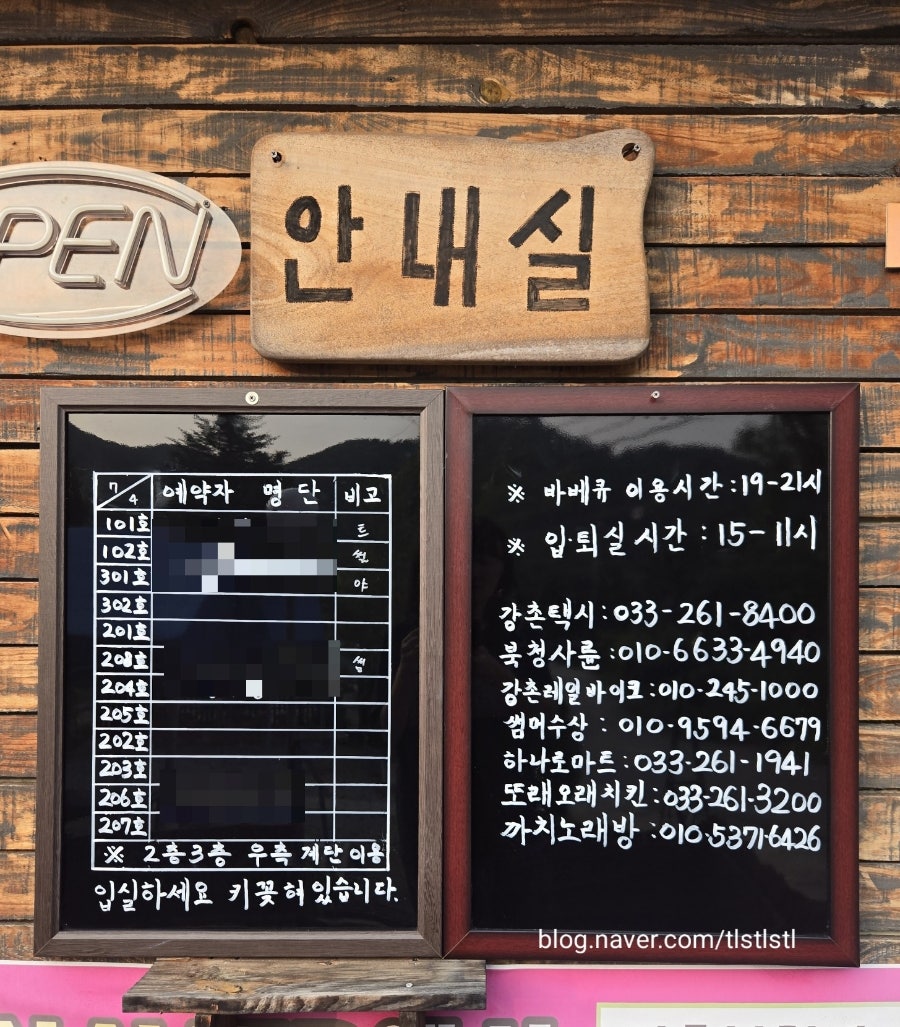 PEN
안내실
7/4 예약자 명단 비고
101호 트
102호 썰
301호 야
302호
201호
208호 썸
204호
205호
202호
203호
206호
207호
※ 2층3층 우측 계단 이용
입실하세요 키 꽂혀 있습니다.
※ 바베큐 이용시간 : 19-21시
※ 입·퇴실 시간 : 15-11시
강촌택시 : 033-261-8400
북청사륜 : 010-6633-4940
강촌레일바이크 : 010-245-1000
썸머수상 : 010-9594-6679
하나로마트 : 033-261-1941
또래오래치킨 : 033-261-3200
까치노래방 : 010-5371-6426
blog.naver.com/tlstlstl